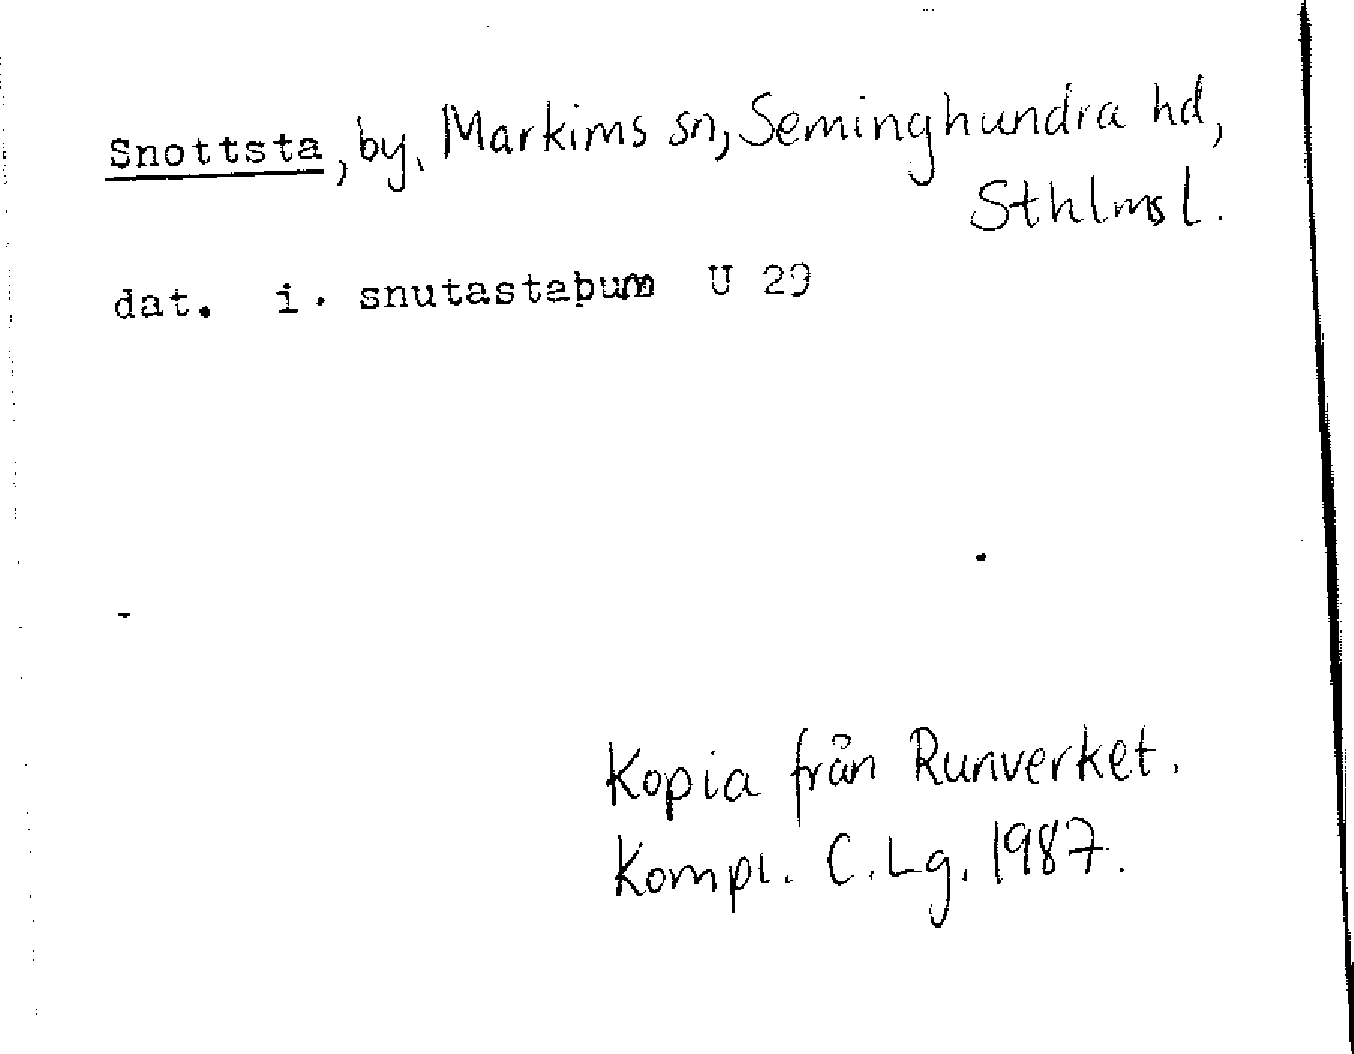 Snottsta, by, Markims sn, Seminghundra hd,
Sthlms l.
dat. i. snutastaþum U 29
Kopia från Runverket.
Kompl. C.Lg. 1987.